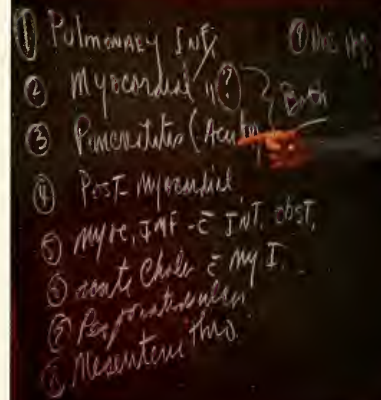 ① Pulmonary Inf.
② Myocardial " ?
Both
③ Pancreatitis (Acute)
④ Post-Myocardial
⑤ Myoc. Inf - c̄ Int. obst.
⑥ acute Chole c̄ My I.
⑦ Perforated ulcer
⑧ Mesenteric Thro.
⑨